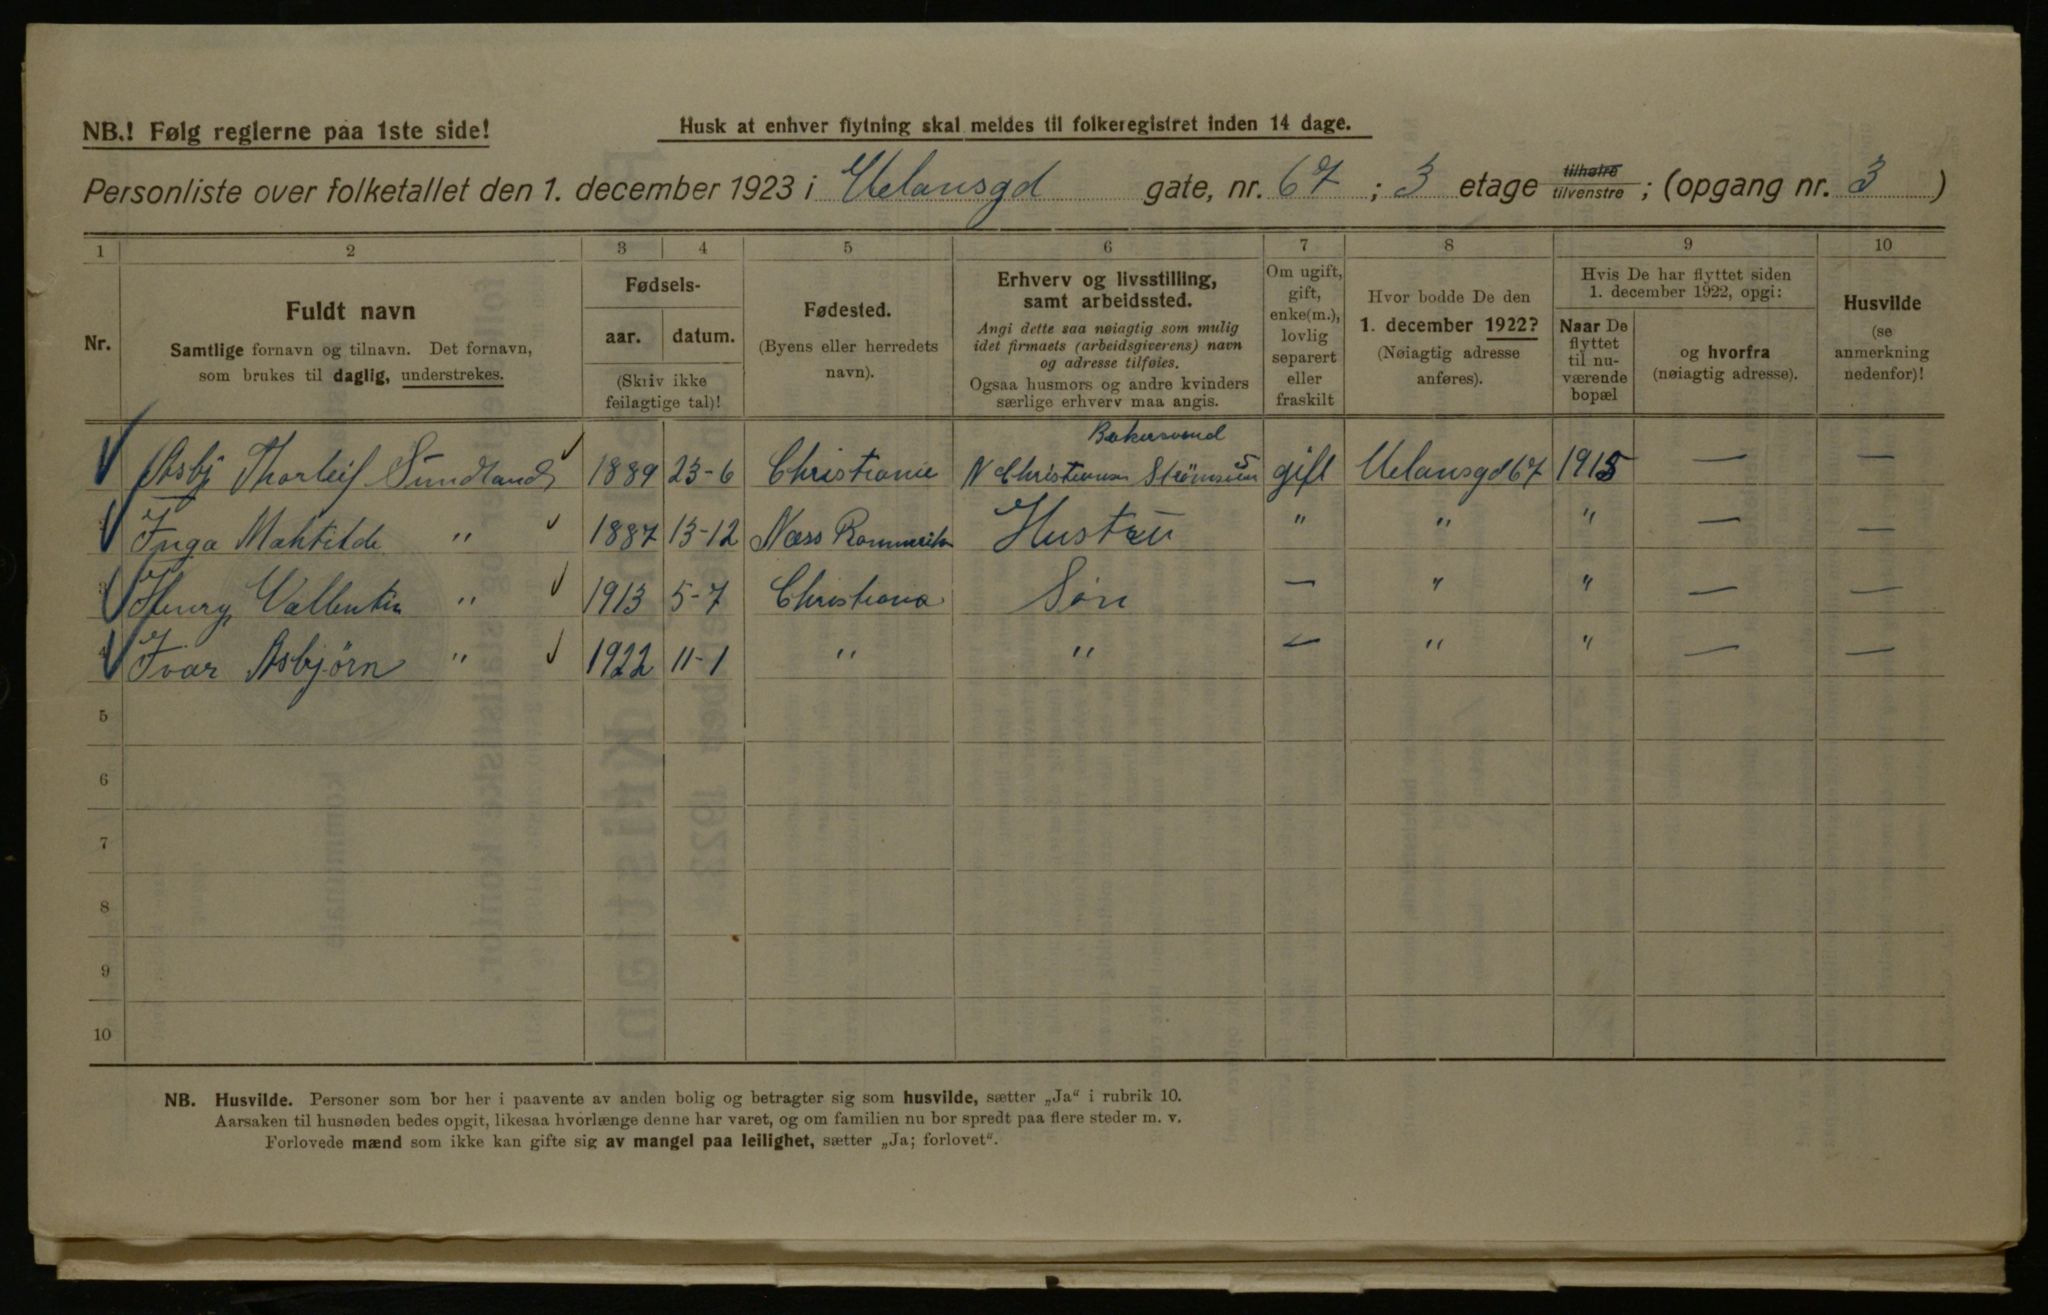 NB.! Følg reglerne paa 1ste side!
Husk at enhver flytning skal meldes til folkeregistret inden 14 dage.
Personliste over folketallet den 1. december 1923 i Uelansgd gate, nr. 67 ; 3 etage tilhøire tilvenstre ; (opgang nr. 3 )
1 2 3 4 5 6 7 8 9 10
Nr.
Fuldt navn
Samtlige fornavn og tilnavn. Det fornavn,
som brukes til daglig, understrekes.
Fødsels-
aar. datum.
(Skriv ikke
feilagtige tal)!
Fødested.
(Byens eller herredets
navn).
Erhverv og livsstilling,
samt arbeidssted.
Angi dette saa nøiagtig som mulig
idet firmaets (arbeidsgiverens) navn
og adresse tilføies.
Ogsaa husmors og andre kvinders
særlige erhverv maa angis.
Om ugift,
gift,
enke(m.),
lovlig
separert
eller
fraskilt
Hvor bodde De den
1. december 1922?
(Nøiagtig adresse
anføres).
Hvis De har flyttet siden
1. december 1922, opgi:
Naar De
flyttet
til nu-
værende
bopæl
og hvorfra
(nøiagtig adresse).
Husvilde
(se
anmerkning
nedenfor)!
Bakersvend
Asbj Thorleif Sundland 1889 23-6 Christiania N Christiansen gift Uelansgd 67 1915 — —
2 Inga Mahtilde " 1887 13-12 Næss Romerike Hustru " " " — —
3 Henry Vallentin " 1913 5-7 Christiania Søn — " " — —
4 Ivar Asbjørn " 1922 11-1 " " — " " — —
5
6
7
8
9
10
NB. Husvilde. Personer som bor her i paavente av anden bolig og betragter sig som husvilde, sætter „Ja“ i rubrik 10.
Aarsaken til husnøden bedes opgit, likesaa hvorlænge denne har varet, og om familien nu bor spredt paa flere steder m. v.
Forlovede mænd som ikke kan gifte sig av mangel paa leilighet, sætter „Ja; forlovet“.